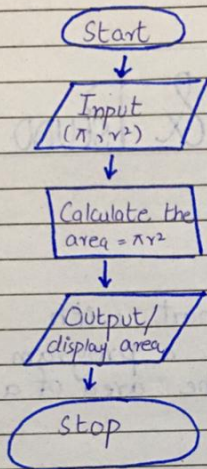 Start
Input
(π, r²)
Calculate the
area = πr²
Output/
display area
Stop